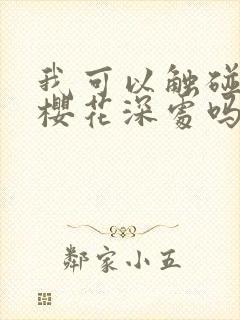 我可以触碰
樱花深处吗
鄰家小五